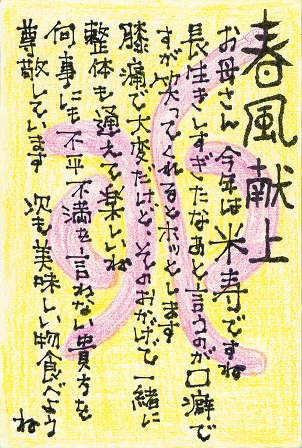 春風献上
お母さん 今年は米寿ですね
長生きしすぎたなあと言うのが口癖で
すが笑ってくれるとホッとします
膝痛で大変だけど、そのおかげで一緒に
整体も通えて楽しいね
何事にも不平不満を言わない貴方を
尊敬しています 次も美味しい物食べようね